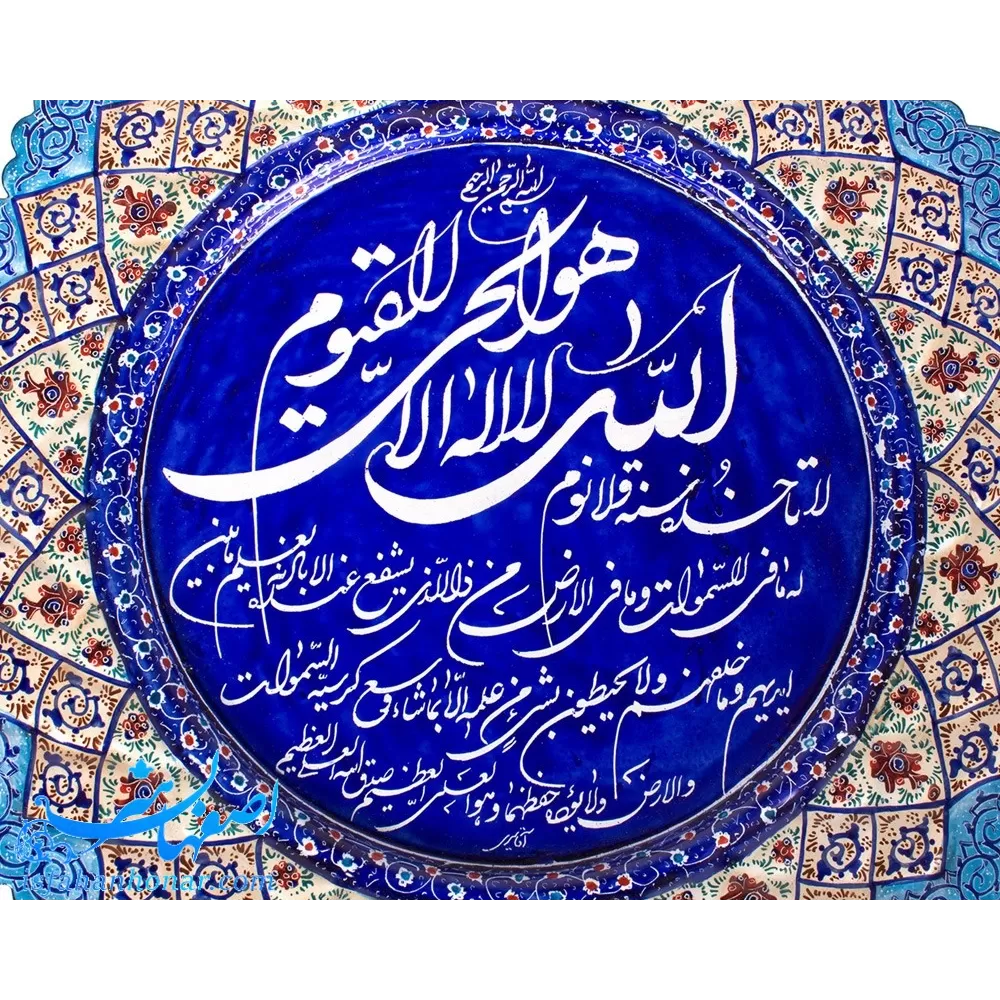 بسم الله الرحمن الرحیم
الله لا اله الا هو الحی القیوم
لا تاخذه سنة و لا نوم
له ما فی السموات و ما فی الارض من ذا الذی یشفع عنده الا باذنه یعلم ما بین
ایدیهم و ما خلفهم و لا یحیطون بشیء من علمه الا بما شاء وسع کرسیه السموات
و الارض و لا یؤده حفظهما و هو العلی العظیم صدق الله العلی العظیم
اصفهان هنر
isfahanhonar.com